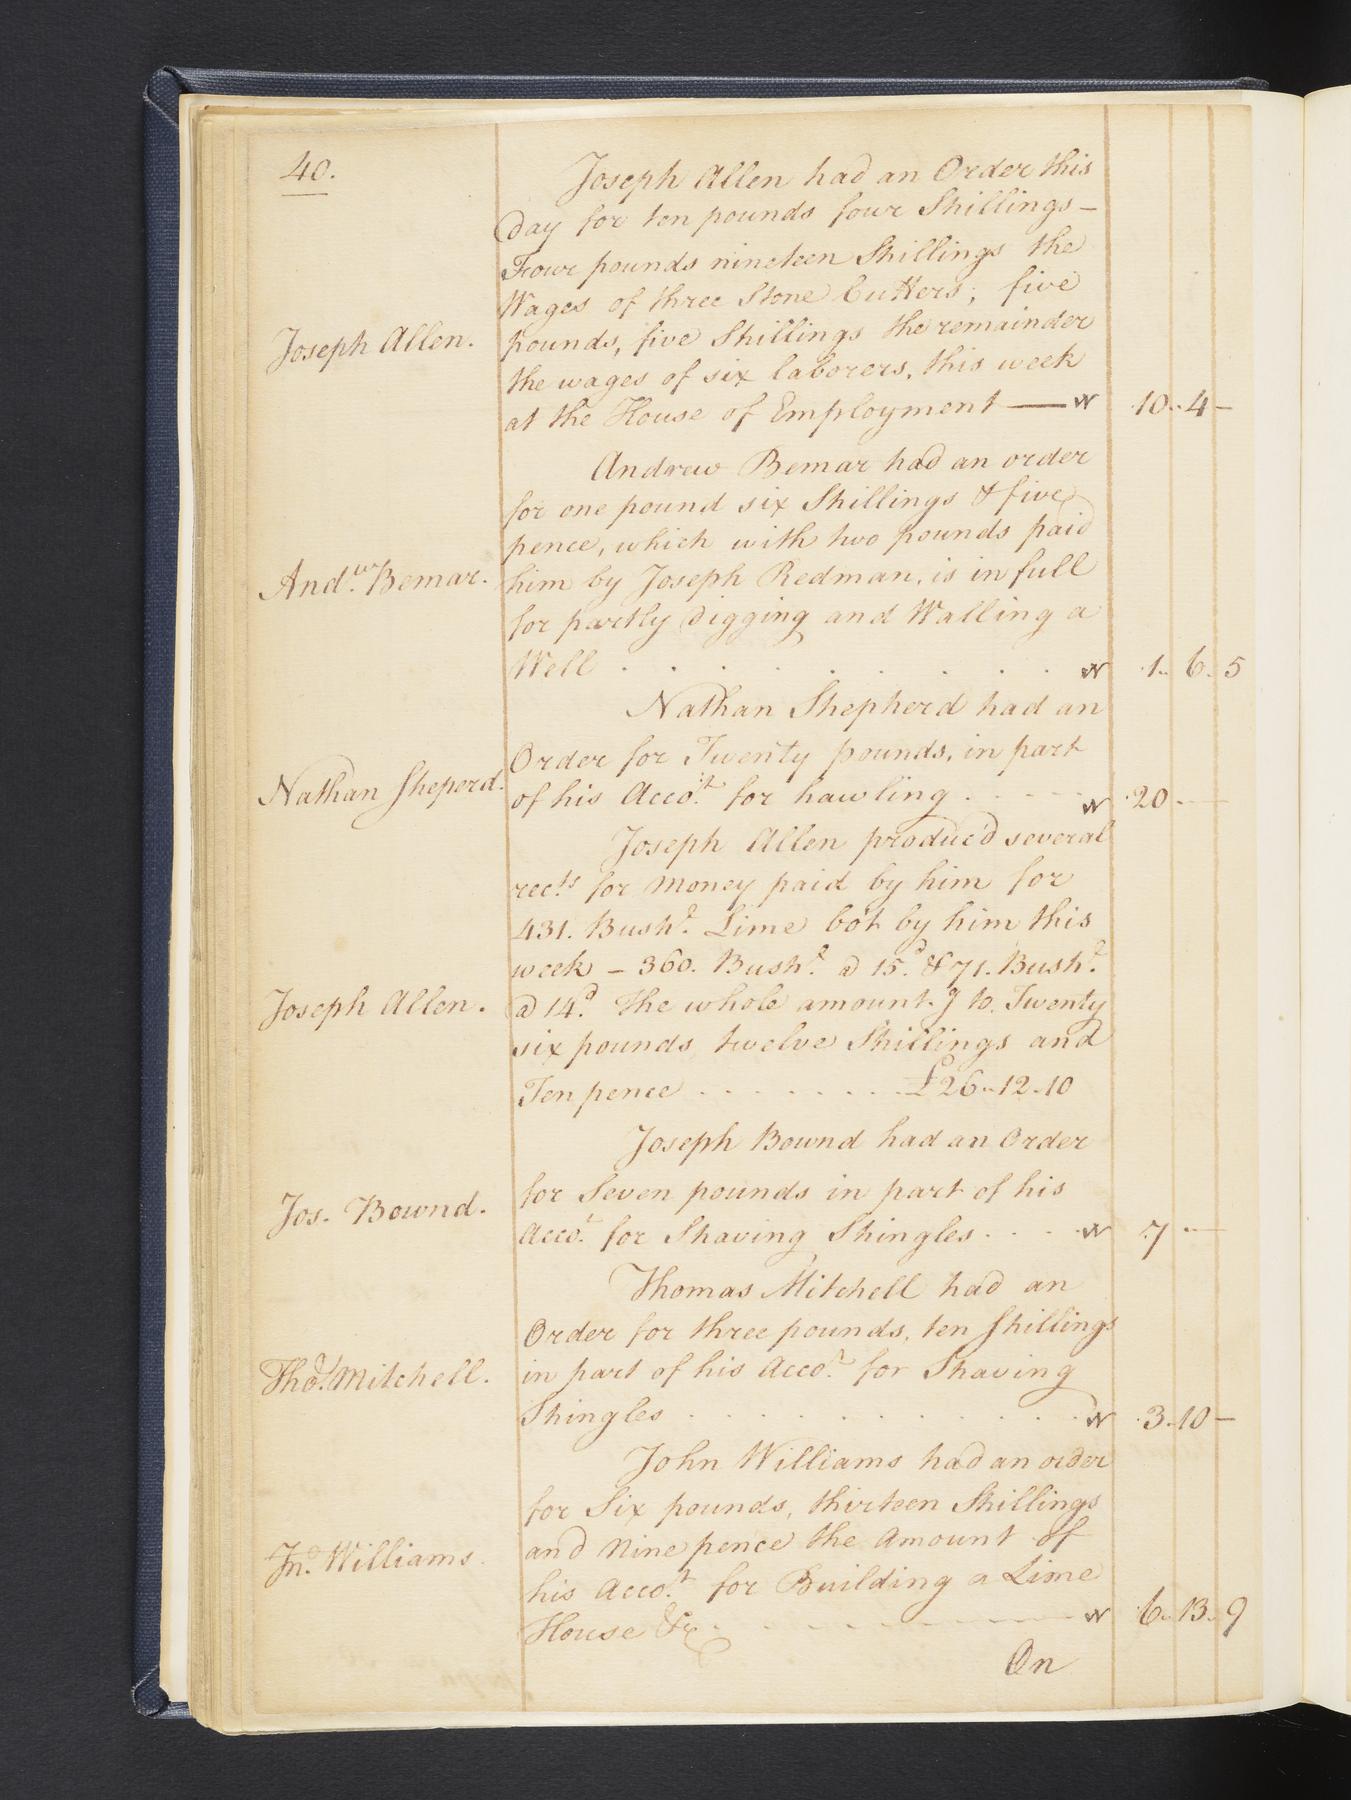 40.
Joseph Allen had an Order this
Day for ten pounds four Shillings —
Four pounds nineteen Shillings the
Wages of three Stone Cutters; five
Joseph Allen. pounds, five Shillings the remainder
the wages of six laborers, this week
at the House of Employment — W 10.. 4 —
Andrew Bemar had an order
for one pound six Shillings & five
pence, which with two pounds paid
And.w Bemar. him by Joseph Redman, is in full
for partly Digging and Walling a
Well . . . . . . . . . W 1.. 6.. 5
Nathan Shepherd had an
Order for Twenty pounds, in part
Nathan Sheperd. of his Acco.t for hawling . - - - W 20 . —
Joseph Allen produc'd several
rec.ts for Money paid by him for
431. Bush.l Lime bot by him this
week – 360. Bush.l @ 15.d & 71. Bush.l
Joseph Allen. @ 14.d the whole amount.g to Twenty
six pounds, twelve Shillings and
Ten pence . . . . . . . . £26..12..10
Joseph Bownd had an Order
for Seven pounds in part of his
Jos. Bownd. Acco.t for Shaving Shingles . . . . W 7 . —
Thomas Mitchell had an
Order for three pounds, ten Shillings
Tho.s Mitchell. in part of his Acco.t for Shaving
Shingles . . . . . . . . . W 3..10 —
John Williams had an order
for Six pounds, thirteen Shillings
Jn.o Williams. and Nine pence the Amount of
his Acco.t for Building a Lime
House &c . - - - - - - W 6.. 13.. 9
On